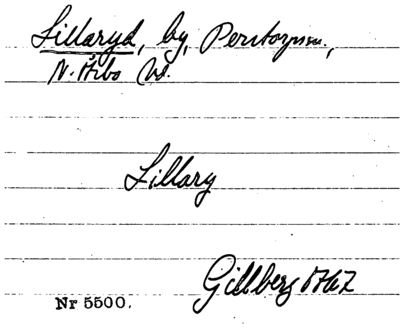 Lillaryd, by, Perstorps sn.,
N. Åsbo
Lillary
Gillberg
Nr 5500.